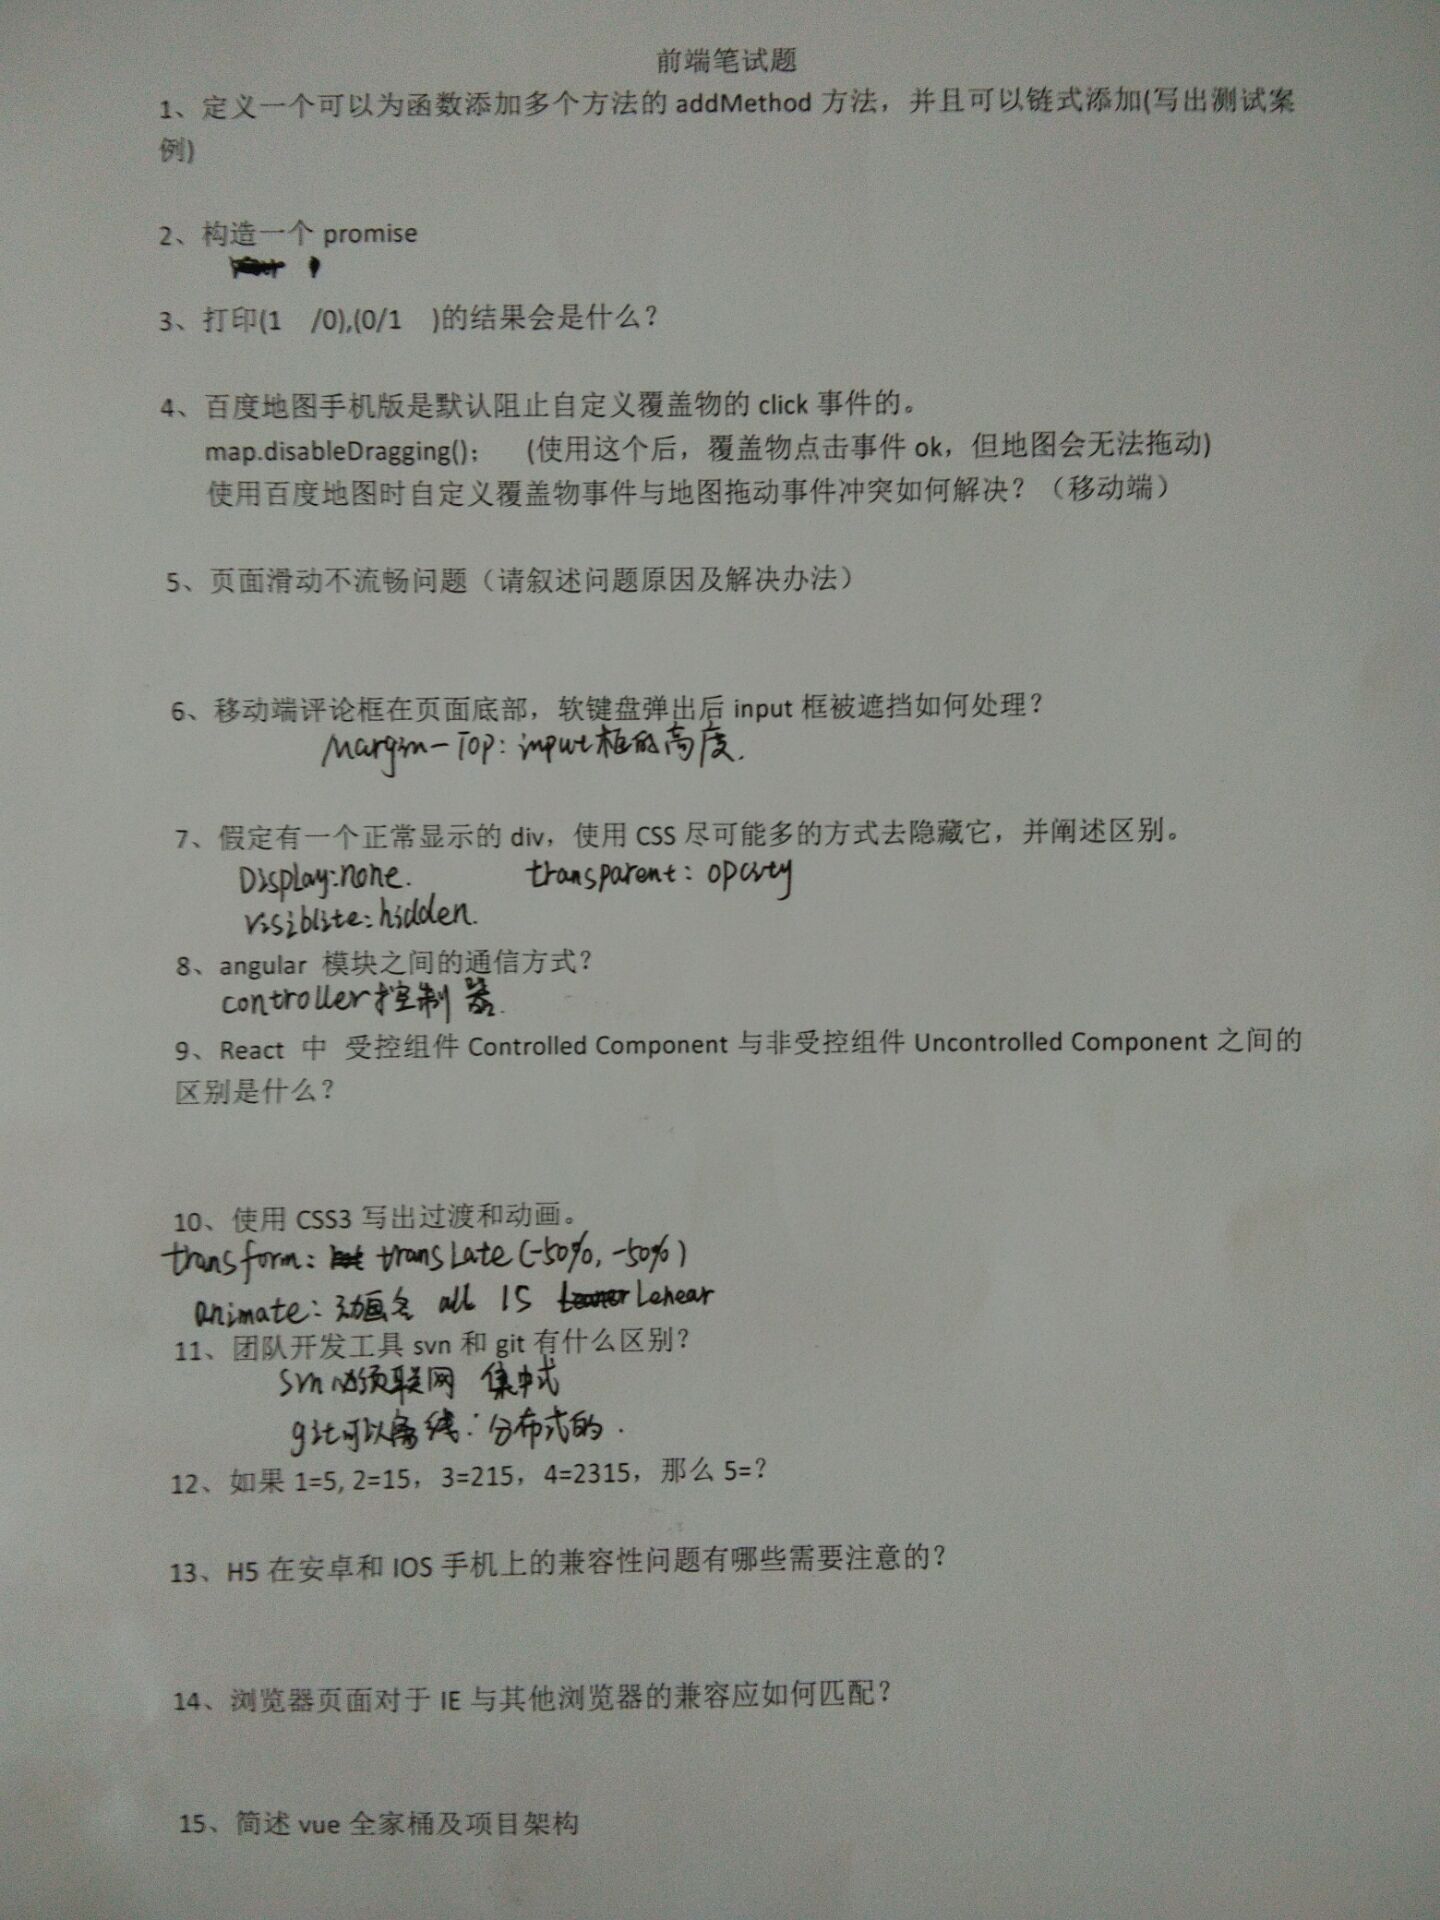 前端笔试题
1、定义一个可以为函数添加多个方法的 addMethod 方法，并且可以链式添加(写出测试案
例)
2、构造一个 promise
3、打印(1 /0),(0/1 )的结果会是什么？
4、百度地图手机版是默认阻止自定义覆盖物的 click 事件的。
map.disableDragging(); (使用这个后，覆盖物点击事件 ok，但地图会无法拖动)
使用百度地图时自定义覆盖物事件与地图拖动事件冲突如何解决？（移动端）
5、页面滑动不流畅问题（请叙述问题原因及解决办法）
6、移动端评论框在页面底部，软键盘弹出后 input 框被遮挡如何处理？
Margin-Top: input框的高度.
7、假定有一个正常显示的 div，使用 CSS 尽可能多的方式去隐藏它，并阐述区别。
Display:none. transparent: opcity
visiblite: hidden.
8、angular 模块之间的通信方式？
controller控制器.
9、React 中 受控组件 Controlled Component 与非受控组件 Uncontrolled Component 之间的
区别是什么？
10、使用 CSS3 写出过渡和动画。
transform: translate(-50%, -50%)
animate: 动画名 all 1S Lenear
11、团队开发工具 svn 和 git 有什么区别？
svn必须联网 集中式
git可以离线: 分布式的.
12、如果 1=5, 2=15，3=215，4=2315，那么 5=？
13、H5 在安卓和 IOS 手机上的兼容性问题有哪些需要注意的？
14、浏览器页面对于 IE 与其他浏览器的兼容应如何匹配？
15、简述 vue 全家桶及项目架构